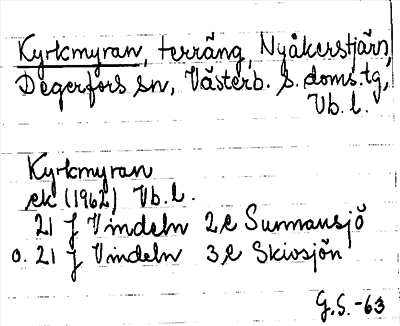 Kyrkmyran, terräng, Nyåkerstjärn,
Degerfors sn, Västerb. s. doms.tg,
Vb. l.
Kyrkmyran
ek (1962) Vb. l.
21 J Vindeln 2e Sunnansjö
o. 21 J Vindeln 3e Skivsjön
G.S. -63